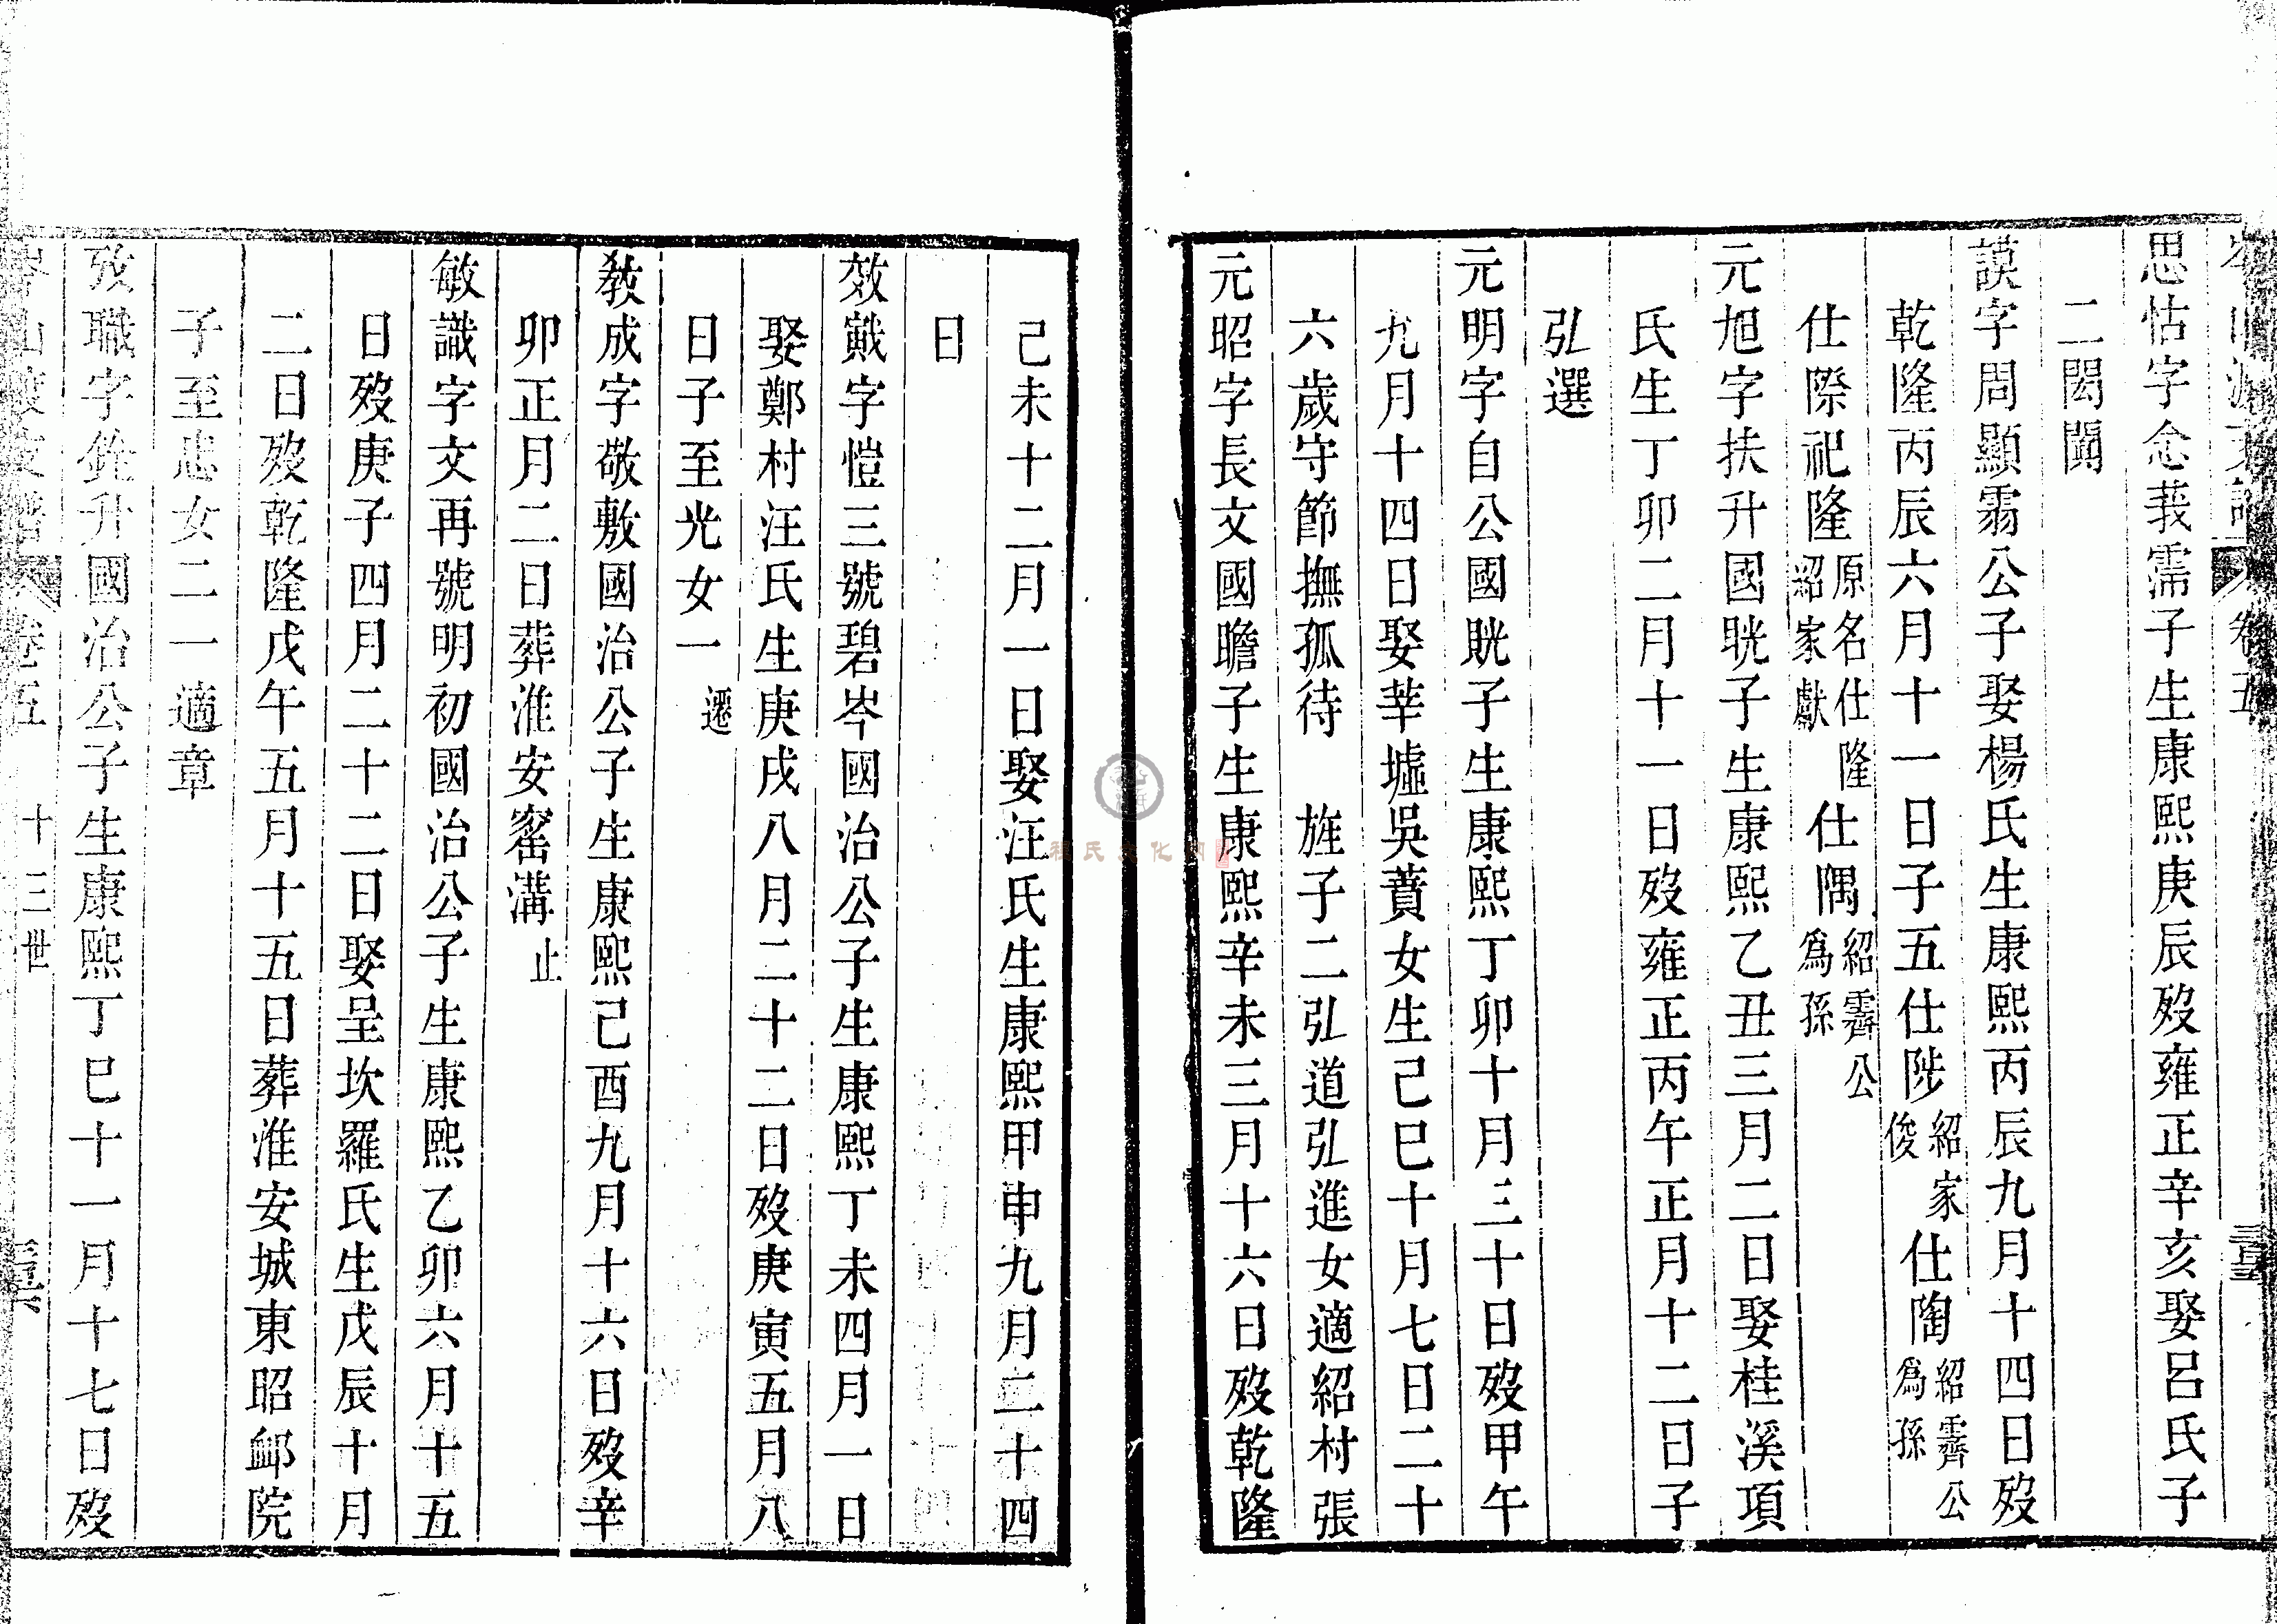 思怙字念莪霈子生康熙庚辰歿雍正辛亥娶呂氏子
二閎闓
謨字周顯霱公子娶楊氏生康熙丙辰九月十四日歿
乾隆丙辰六月十一日子五仕陟紹家俊仕陶紹霽公為孫
仕際祀隆原名仕隆紹家獻仕隅紹霽公為孫
元旭字扶升國晄子生康熙乙丑三月二日娶桂溪項
氏生丁卯二月十一日歿雍正丙午正月十二日子
弘選
元明字自公國晄子生康熙丁卯十月三十日歿甲午
九月十四日娶莘墟吳蕡女生己巳十月七日二十
六歲守節撫孤待 旌子二弘道弘進女適紹村張
元昭字長文國瞻子生康熙辛未三月十六日歿乾隆
己未十二月一日娶汪氏生康熙甲申九月二十四
日
效戭字愷三號碧岑國治公子生康熙丁未四月一日
娶鄭村汪氏生庚戌八月二十二日歿庚寅五月八
日子至光女一 遷
教成字敬敷國治公子生康熙己酉九月十六日歿辛
卯正月二日葬淮安窰溝 止
敏識字文再號明初國治公子生康熙乙卯六月十五
日歿庚子四月二十二日娶呈坎羅氏生戊辰十月
二日歿乾隆戊午五月十五日葬淮安城東昭卹院
子至忠女二一適章
攷職字銓升國治公子生康熙丁巳十一月十七日歿
卷五 十三世